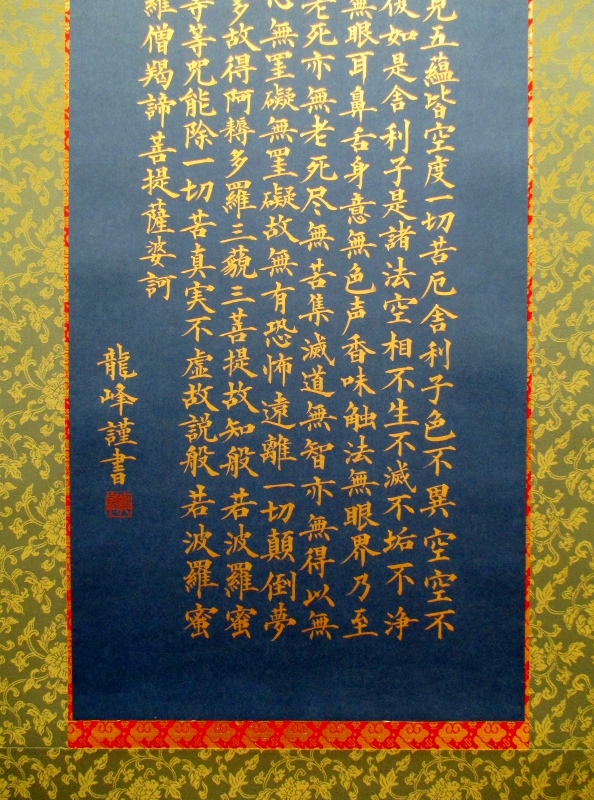 見五蘊皆空度一切苦厄舎利子色不異空空不
復如是舎利子是諸法空相不生不滅不垢不浄
無眼耳鼻舌身意無色声香味触法無眼界乃至
老死亦無老死尽無苦集滅道無智亦無得以無
心無罣礙無罣礙故無有恐怖遠離一切顛倒夢
多故得阿耨多羅三藐三菩提故知般若波羅蜜
等等咒能除一切苦真実不虚故説般若波羅蜜
羅僧羯諦菩提薩婆訶
龍峰謹書